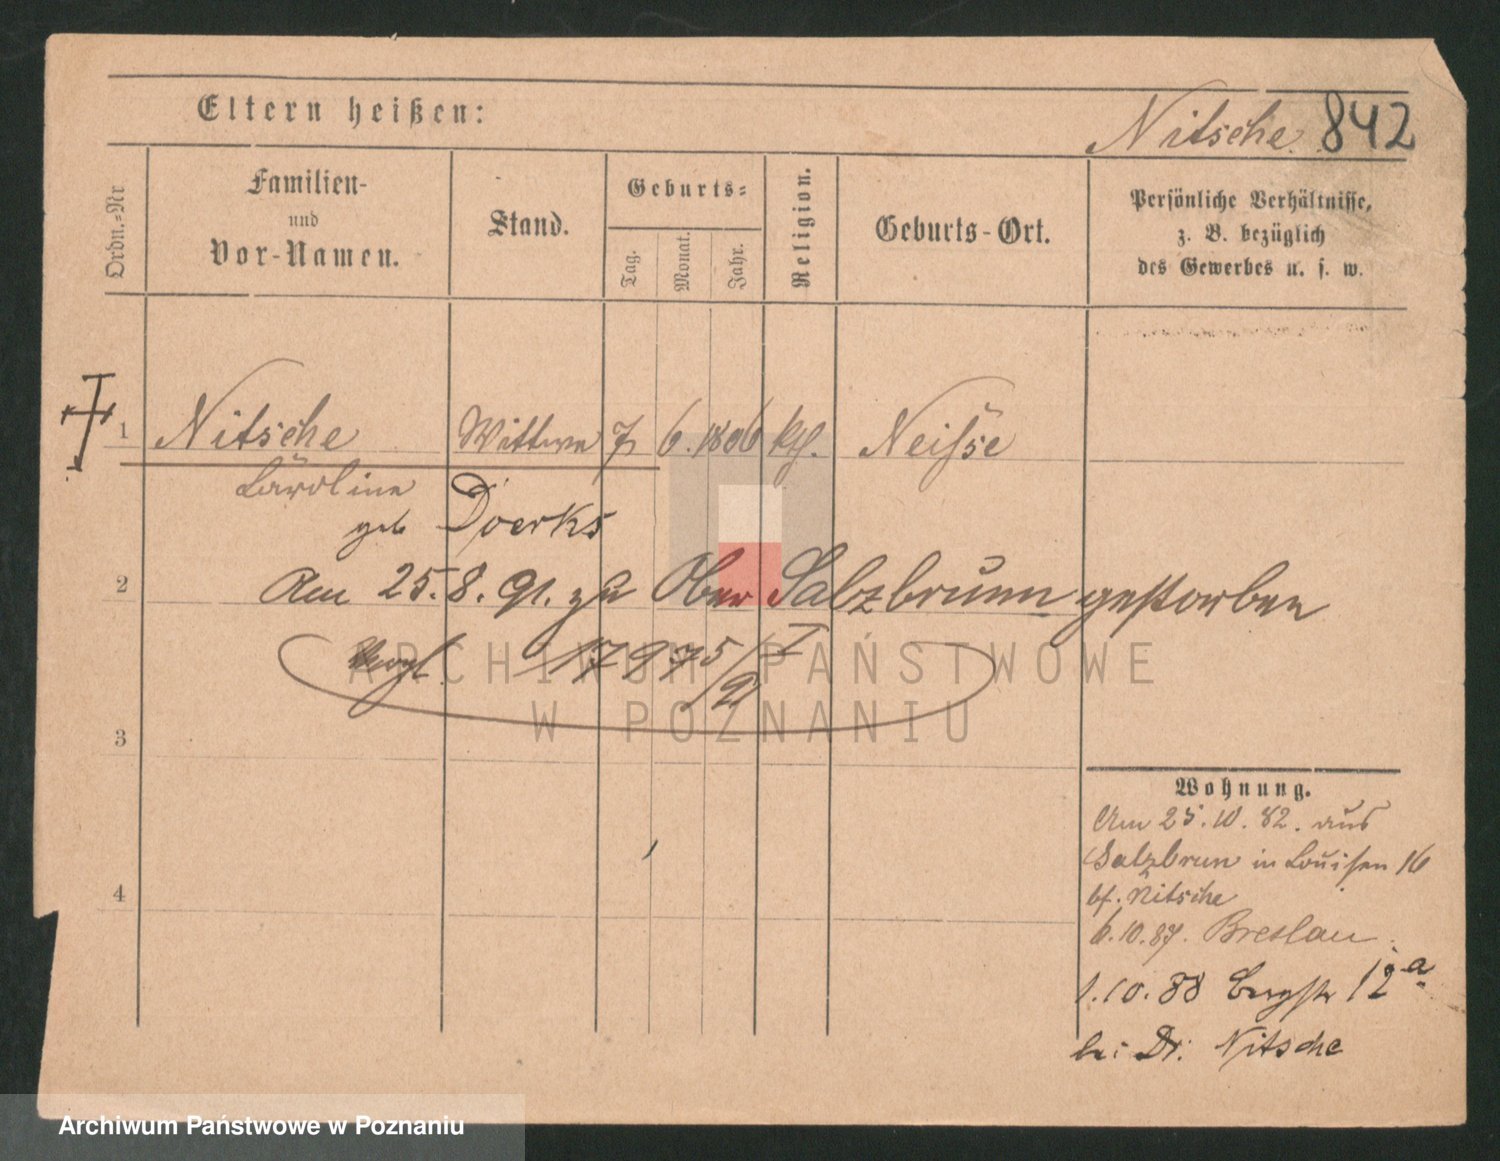 Eltern heißen:
Nitsche 842
Ordn.=Nr
Familien-
und
Vor-Namen.
Stand.
Geburts=
Tag.
Monat.
Jahr.
Religion.
Geburts-Ort.
Persönliche Verhältnisse,
z. B. bezüglich
des Gewerbes u. s. w.
1 Nitsche Wittwe 7 6. 1806 kth. Neisse
Caroline
geb Doerks
2 Am 25.8.91. zu Ober Salzbrunn gestorben
Vergl. 17975/I
/91
ARCHIWUM PAŃSTWOWE
W POZNANIU
3
4
Wohnung.
Am 25.10.82. aus
Salzbrun in Louisen 16
bf. Nitsche
6.10.87. Breslau.
1.10.88 Bergstr 12a
bei Dr. Nitsche
Archiwum Państwowe w Poznaniu